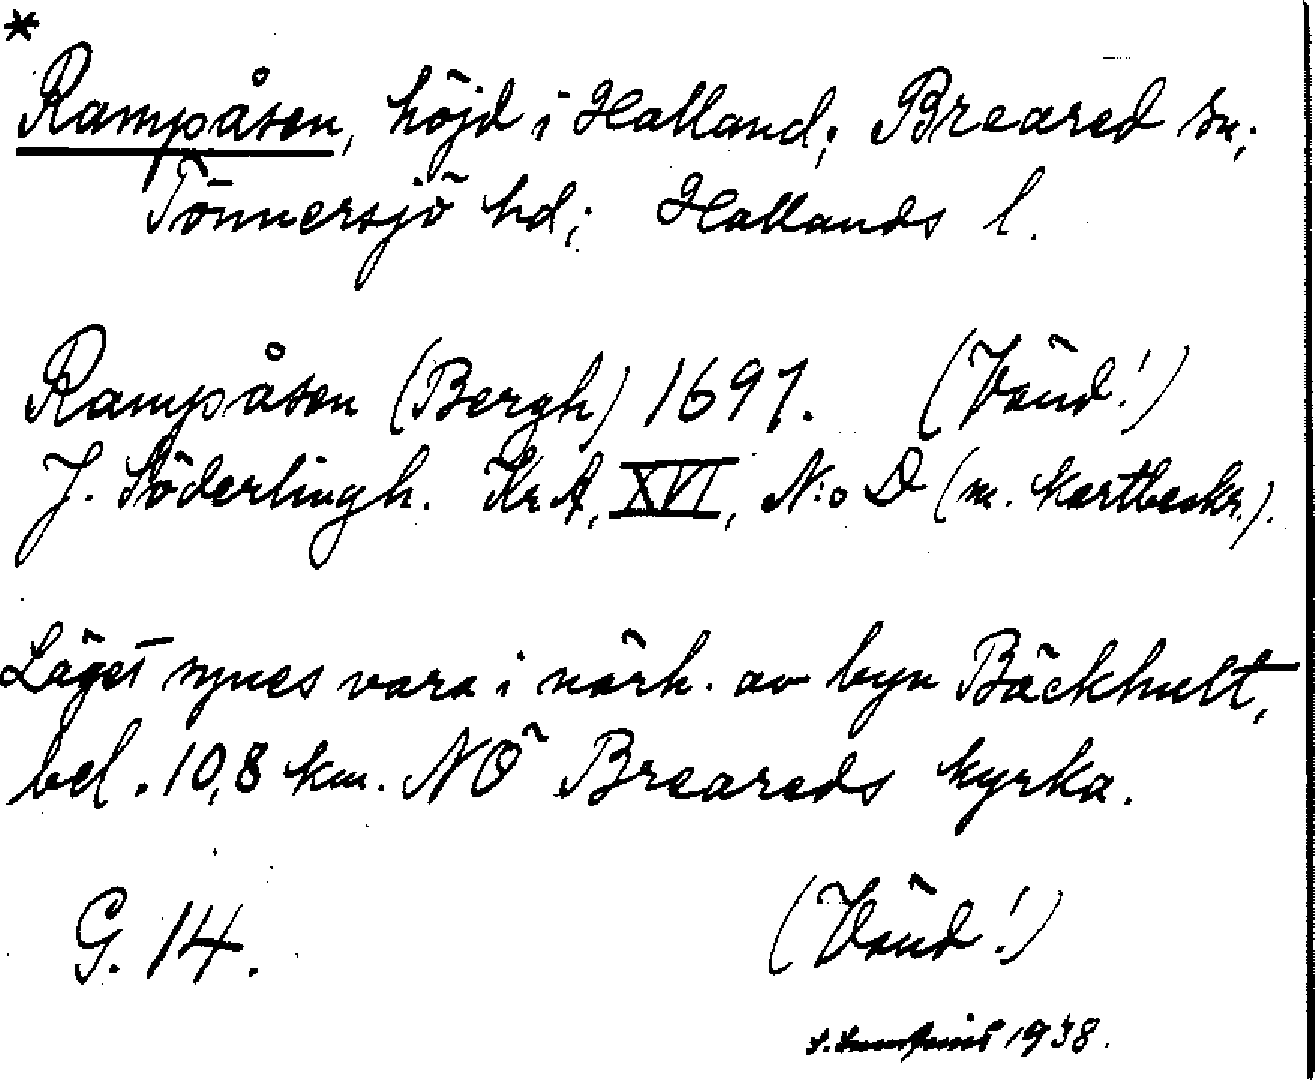 *
Rampåsen, höjd i Halland; Breared sn;
Tönnersjö hd; Hallands l.
Rampåsen (Bergh) 1697. (Vänd!)
J. Söderlingh. Kr.A, XVI, N:o D (m. kartbeskr.).
Läget synes vara i närh. av byn Bäckhult,
bel. 10,8 km. NÖ Breareds kyrka.
G. 14. (Vänd!)
1938.